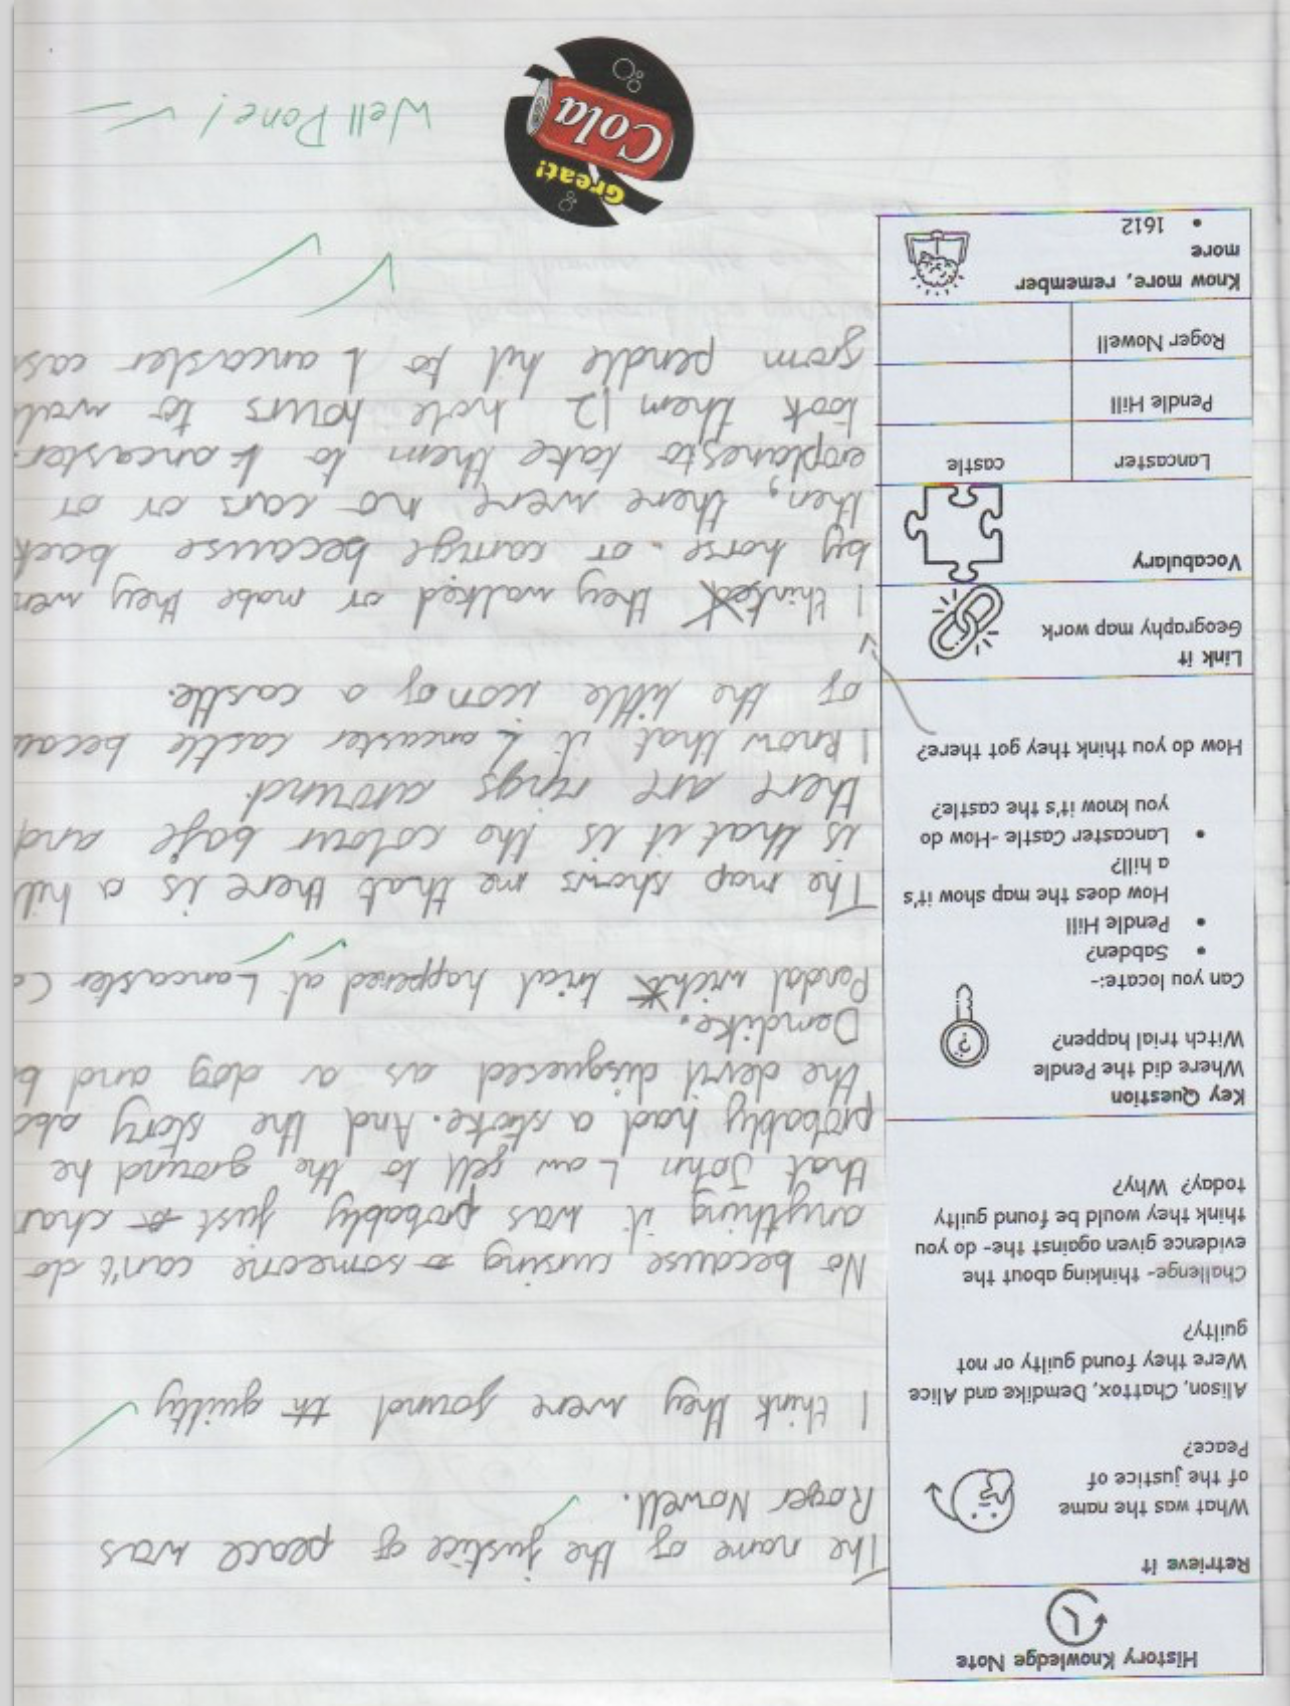 History Knowledge Note
Retrieve it
What was the name
of the justice of
Peace?
Alison, Chattox, Demdike and Alice
Were they found guilty or not
guilty?
Challenge- thinking about the
evidence given against the- do you
think they would be found guilty
today? Why?
Key Question
Where did the Pendle
Witch trial happen?
Can you locate:-
• Sabden?
• Pendle Hill
How does the map show it's
a hill?
• Lancaster Castle -How do
you know it's the castle?
How do you think they got there?
Link it
Geography map work
Vocabulary
Lancaster castle
Pendle Hill
Roger Nowell
Know more, remember
more
• 1612
The name of the justice of peace was
Roger Nowell.
I think they were found guilty
No because cursing someone can't do
anything it was probably just
that John Law fell to the ground he
probably had a stroke. And the story
the devil disguesed as a dog and
Demdike.
Pendal trial happened at Lancaster
The map shows me that there is a hill
is that it is the colour bafe and
there are rings around.
I know that it Lancaster castle
of the little icon of a castle.
I think they walked or mabe they
by horse or carrige because back
then, there were no cars or or
eroplanes to take them to Lancaster.
took them 12 hole hours to
from pendle hil to Lancaster
Great!
Cola
Well Done!